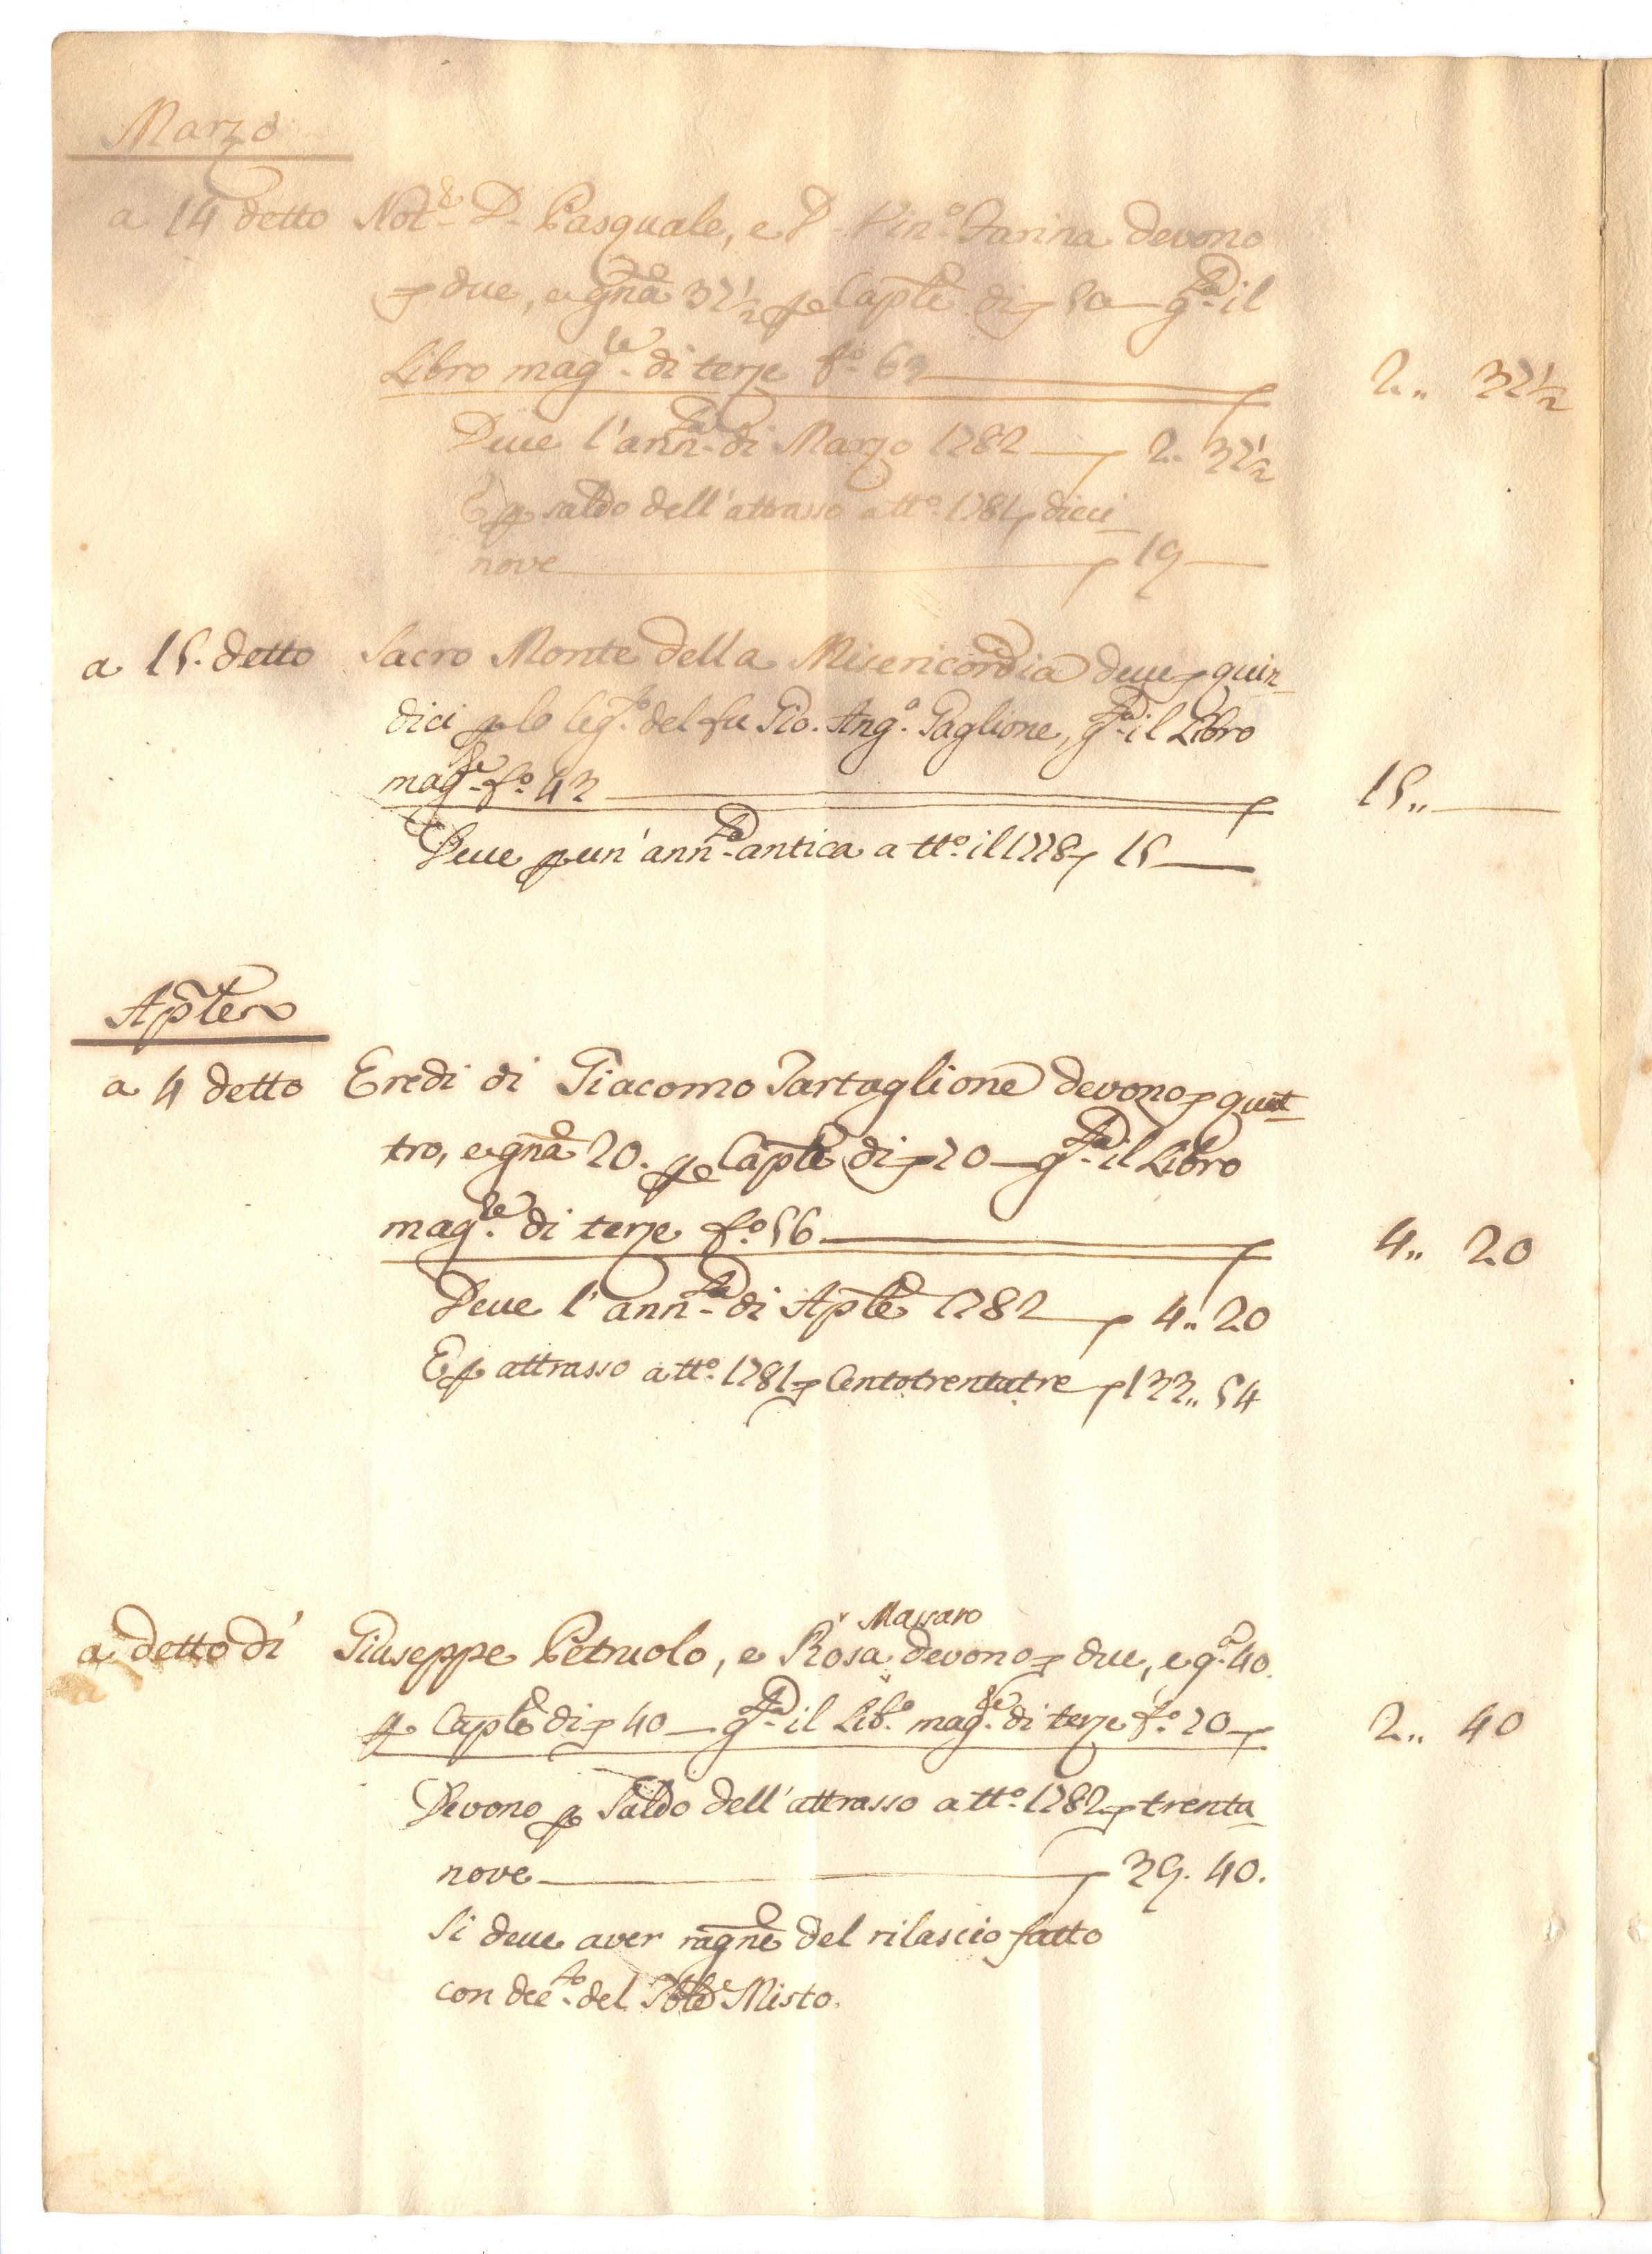 Marzo
a 14 detto Not.r D. Pasquale, e D. Vin.o Farina devono
due, e gnã 32½ Captẽ di 50 — g.ta il
Libro mag.le di terze f.o 63 2.. 32½
Deve l'ann.ta di Marzo 1782 — 2. 32½
E p saldo dell'attrasso a tt.o 1781 dieci
nove — 19 —
a 15. detto Sacro Monte della Misericordia deve quin
dici p lo leg.to del fu Gio. Ang.o Paglione, g.ta il Libro
mag.le f.o 43 15.. —
Deve p un'ann.ta antica a tt.o il 1778 15 —
Aplẽ
a 4 detto Eredi di Giacomo Tartaglione devono quat
tro, e gnã 20. p Captẽ di 70 — g.ta il Libro
mag.le di terze f.o 56 4.. 20
Deve l'ann.ta di Aplẽ 1782 — 4.. 20
E p attrasso a tt.o 1781 Centotrentatre 133.. 54
Massaro
a detto dì Giuseppe Petruolo, e Rosa devono due, e g.a 40.
p Captẽ di 40 — g.ta il Lib.o mag.le di terze f.o 20 2.. 40
Devono p saldo dell'attrasso a tt.o 1782 trenta
nove — 39. 40.
Si deve aver ragnẽ del rilascio fatto
con dec.to del Tblẽ Misto.